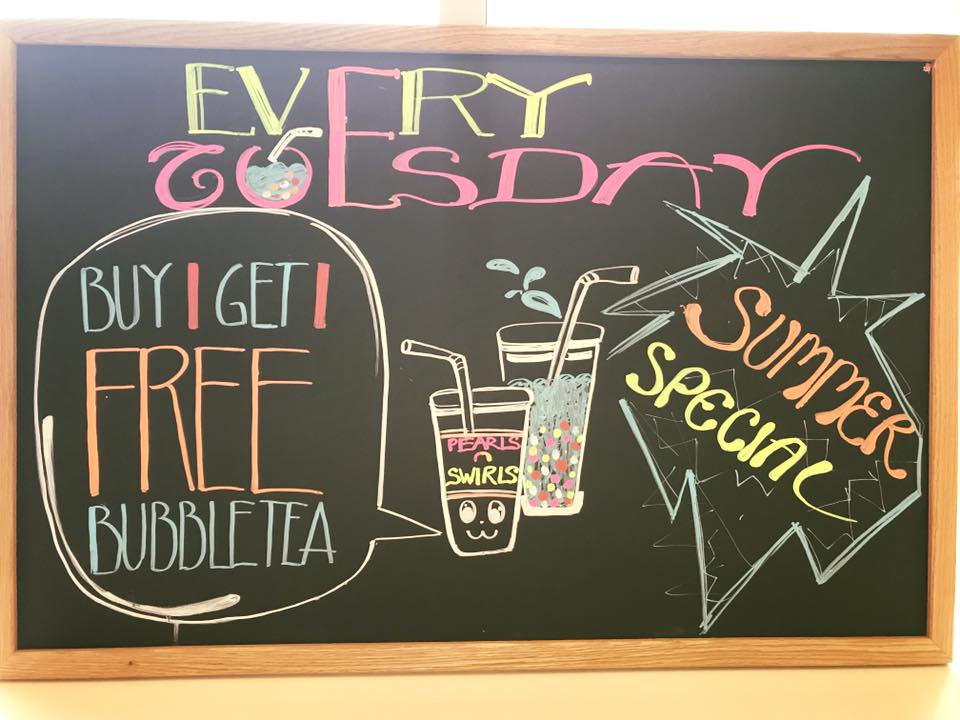 EVERY
TUESDAY
BUY 1 GET 1
FREE
BUBBLE TEA
PEARLS
n
SWIRLS
SUMMER
SPECIAL